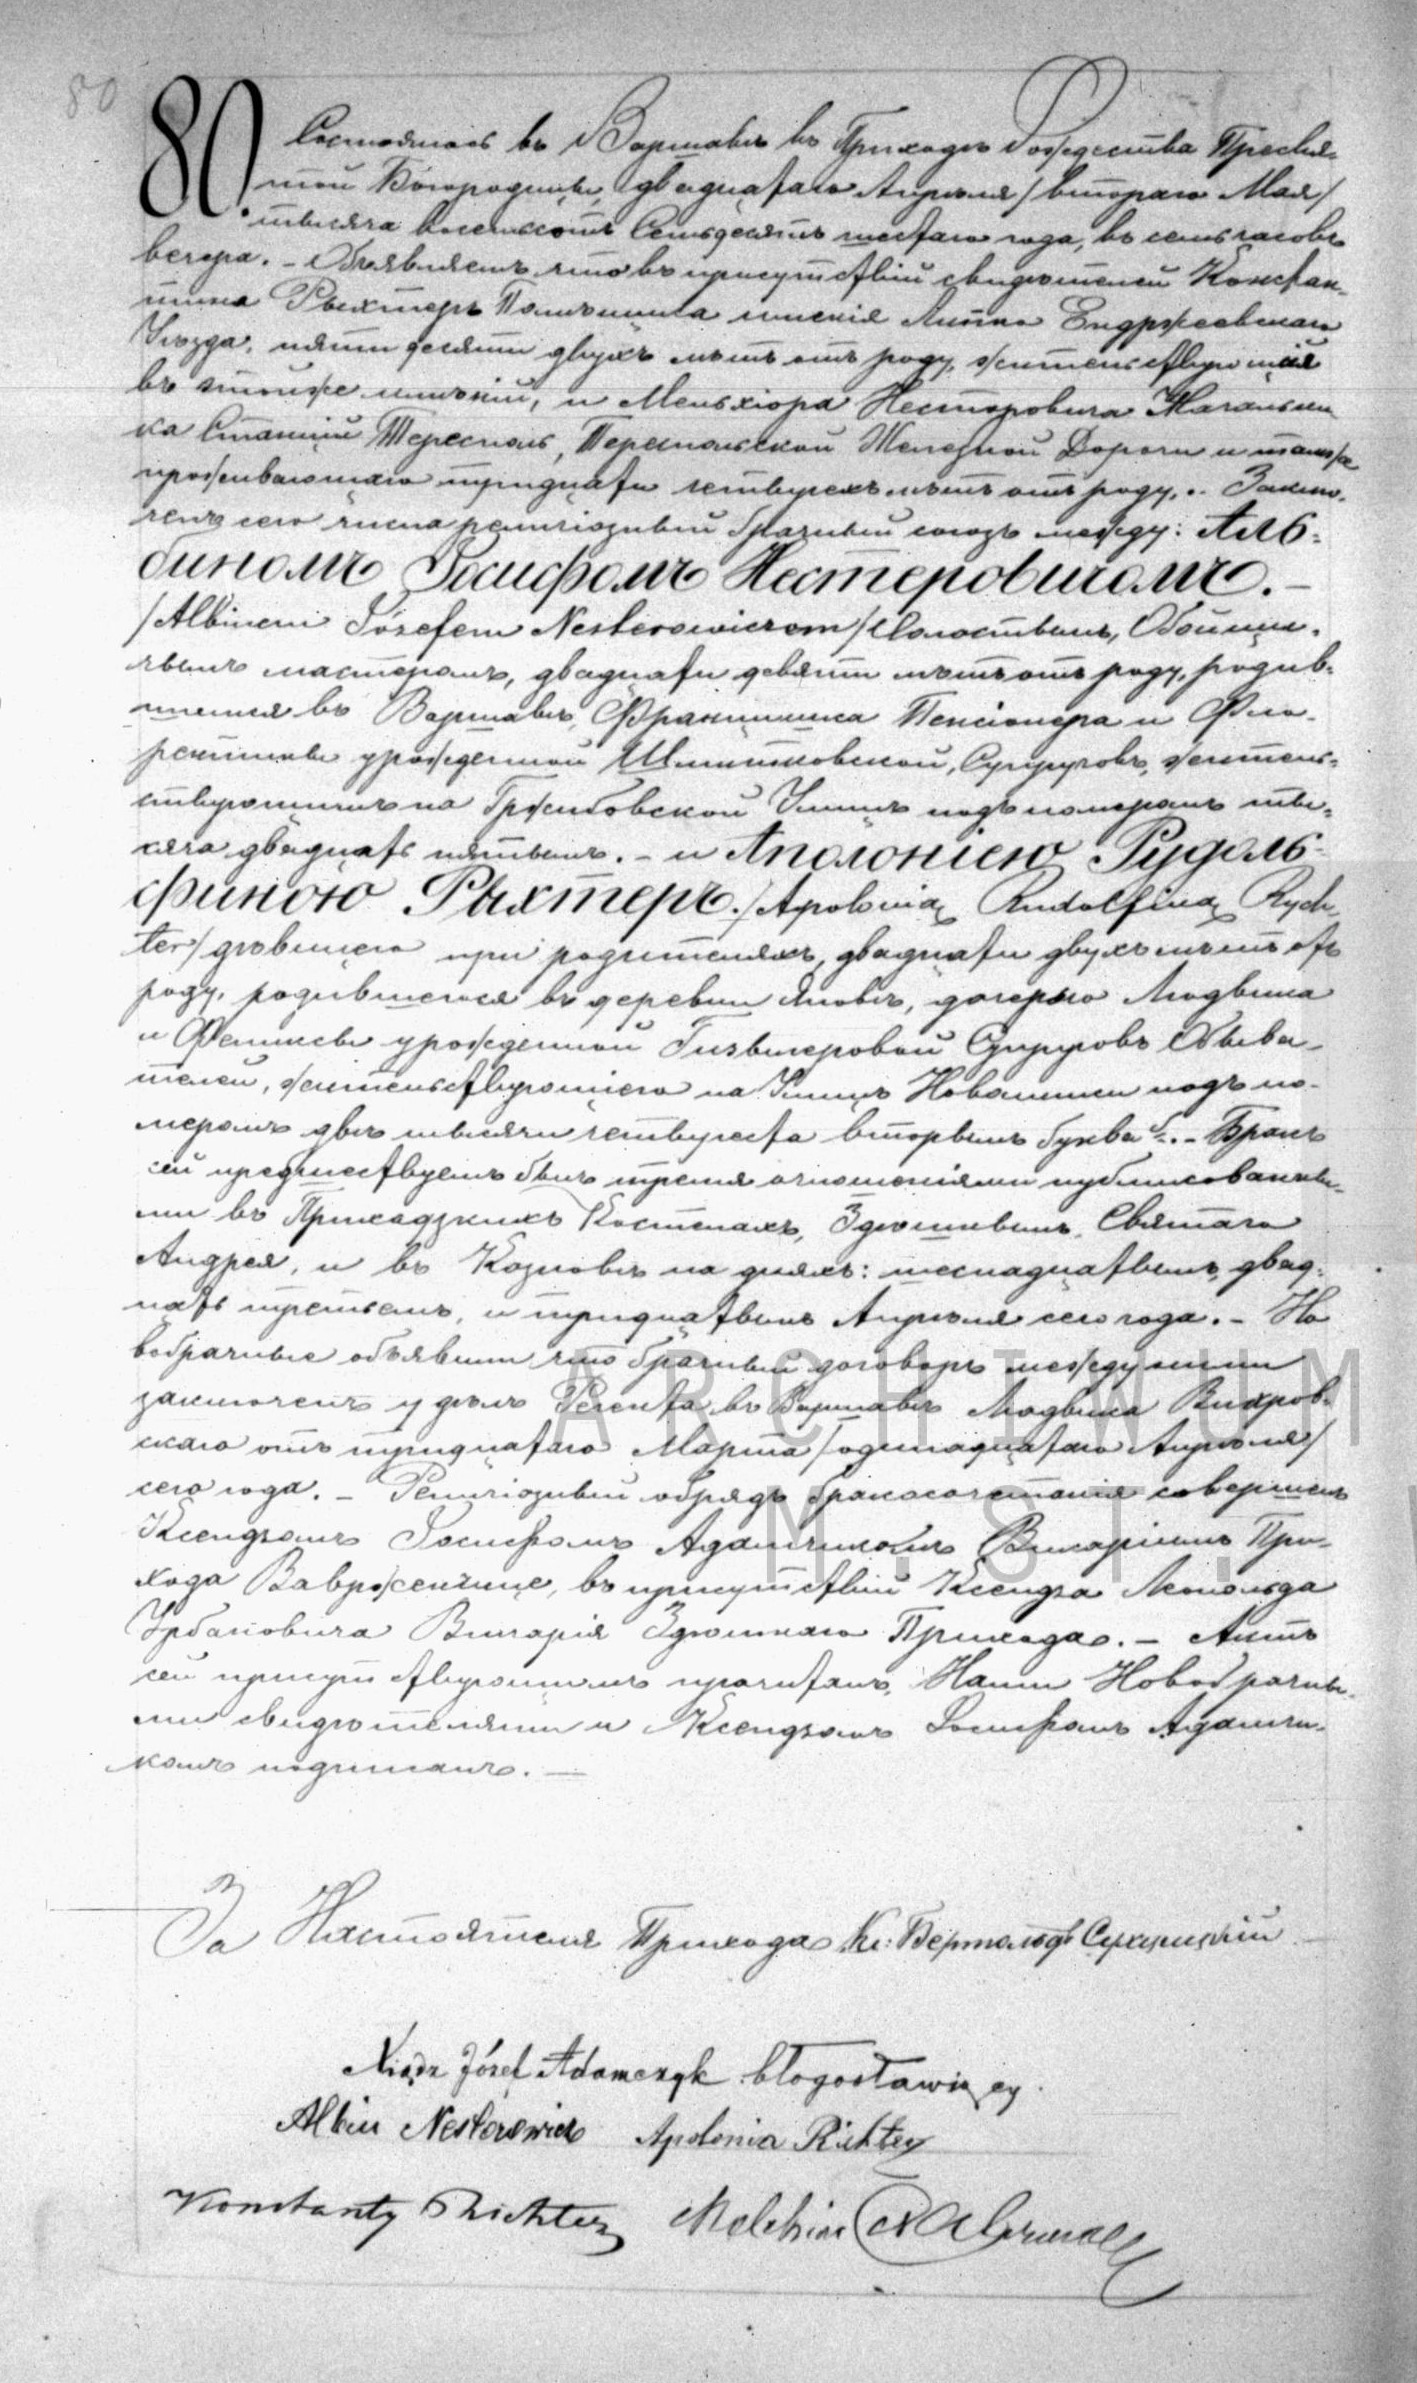 80
80. Состоялось въ Варшавѣ въ Приходѣ Рождества Пресвя-
той Богородицы, двадцатаго Апрѣля /втораго Мая/
тысяча восемьсотъ Семьдесятъ шестаго года, въ семь часовъ
вечера. – Объявляемъ что въ присутствіи свидѣтелей Констан-
тина Рыхтеръ Помѣщика имѣнія Андреевскаго
Уѣзда, пятидесяти двухъ лѣтъ отъ роду, жительствующій
въ томже имѣніи, и Мельхіора Несторовича Начальни
ка Станціи Тересполь, Тереспольской Желѣзной Дороги и тамже
проживающаго тридцати четырехъ лѣтъ отъ роду. – Заклю-
ченъ сего числа религіозный брачный союзъ между: Аль-
биномъ Іосифомъ Нестеровичомъ. –
/Albinem Józefem Nesterowiczem/ Холостымъ, Обойщи-
чьимъ мастеромъ, двадцати девяти лѣтъ отъ роду, родив-
шемся въ Варшавѣ, Францишка Пенсіонера и Фло-
рентины урожденной Супруговъ, житель-
ствующимъ на Гржибовской Улицѣ подъ номеромъ ты-
сяча двадцать пятымъ. – и Аполоніею Рудоль-
финою Рыхтеръ. /Apolonią Rudolfiną Rych-
ter/ дѣвицею при родителяхъ, двадцати двухъ лѣтъ отъ
роду, родившеюся въ деревни Яновѣ, дочерью Людвика
и Феликсы урожденной Супруговъ Обыва-
телей, жительствующею на Улицѣ Новолипки подъ но-
меромъ двѣ тысячи четыреста вторымъ буква б. – Бракъ
сей предшествуемъ былъ тремя оглашеніями публикованны-
ми въ Приходзкихъ Костелахъ, Здѣшнымъ, Святаго
Андрея, и въ Козловѣ на дняхъ: шеснадцатымъ, двад-
цать третьемъ, и тридцатымъ Апрѣля сего года. – Но
вобрачные объявили что брачный договоръ между ними
заключенъ у дѣлъ Регента въ Варшавѣ Людвика
скаго отъ тридцатаго Марта /одинадцатаго Апрѣля/
сего года. – Религіозный обрядъ бракосочетанія совершенъ
Ксендзомъ Іосифомъ Адамчикомъ Викаріемъ При-
хода Вавржențице, въ присутствіи Ксендза Леопольда
Урбановича Викарія Здѣшнаго Прихода. – Актъ
сей присутствующимъ прочитанъ, Нами Новобрачны-
ми свидѣтелями и Ксендзомъ Іосифомъ Адамчи-
комъ подписанъ. –
За Настоятеля Прихода Кс: Бертольдъ
Xiądz Józef Adamczyk błogosławiący.
Albin Nesterowicz Apolonia Richter
Konstanty Richter Melchior
ARCHIWUM
M. ST. W